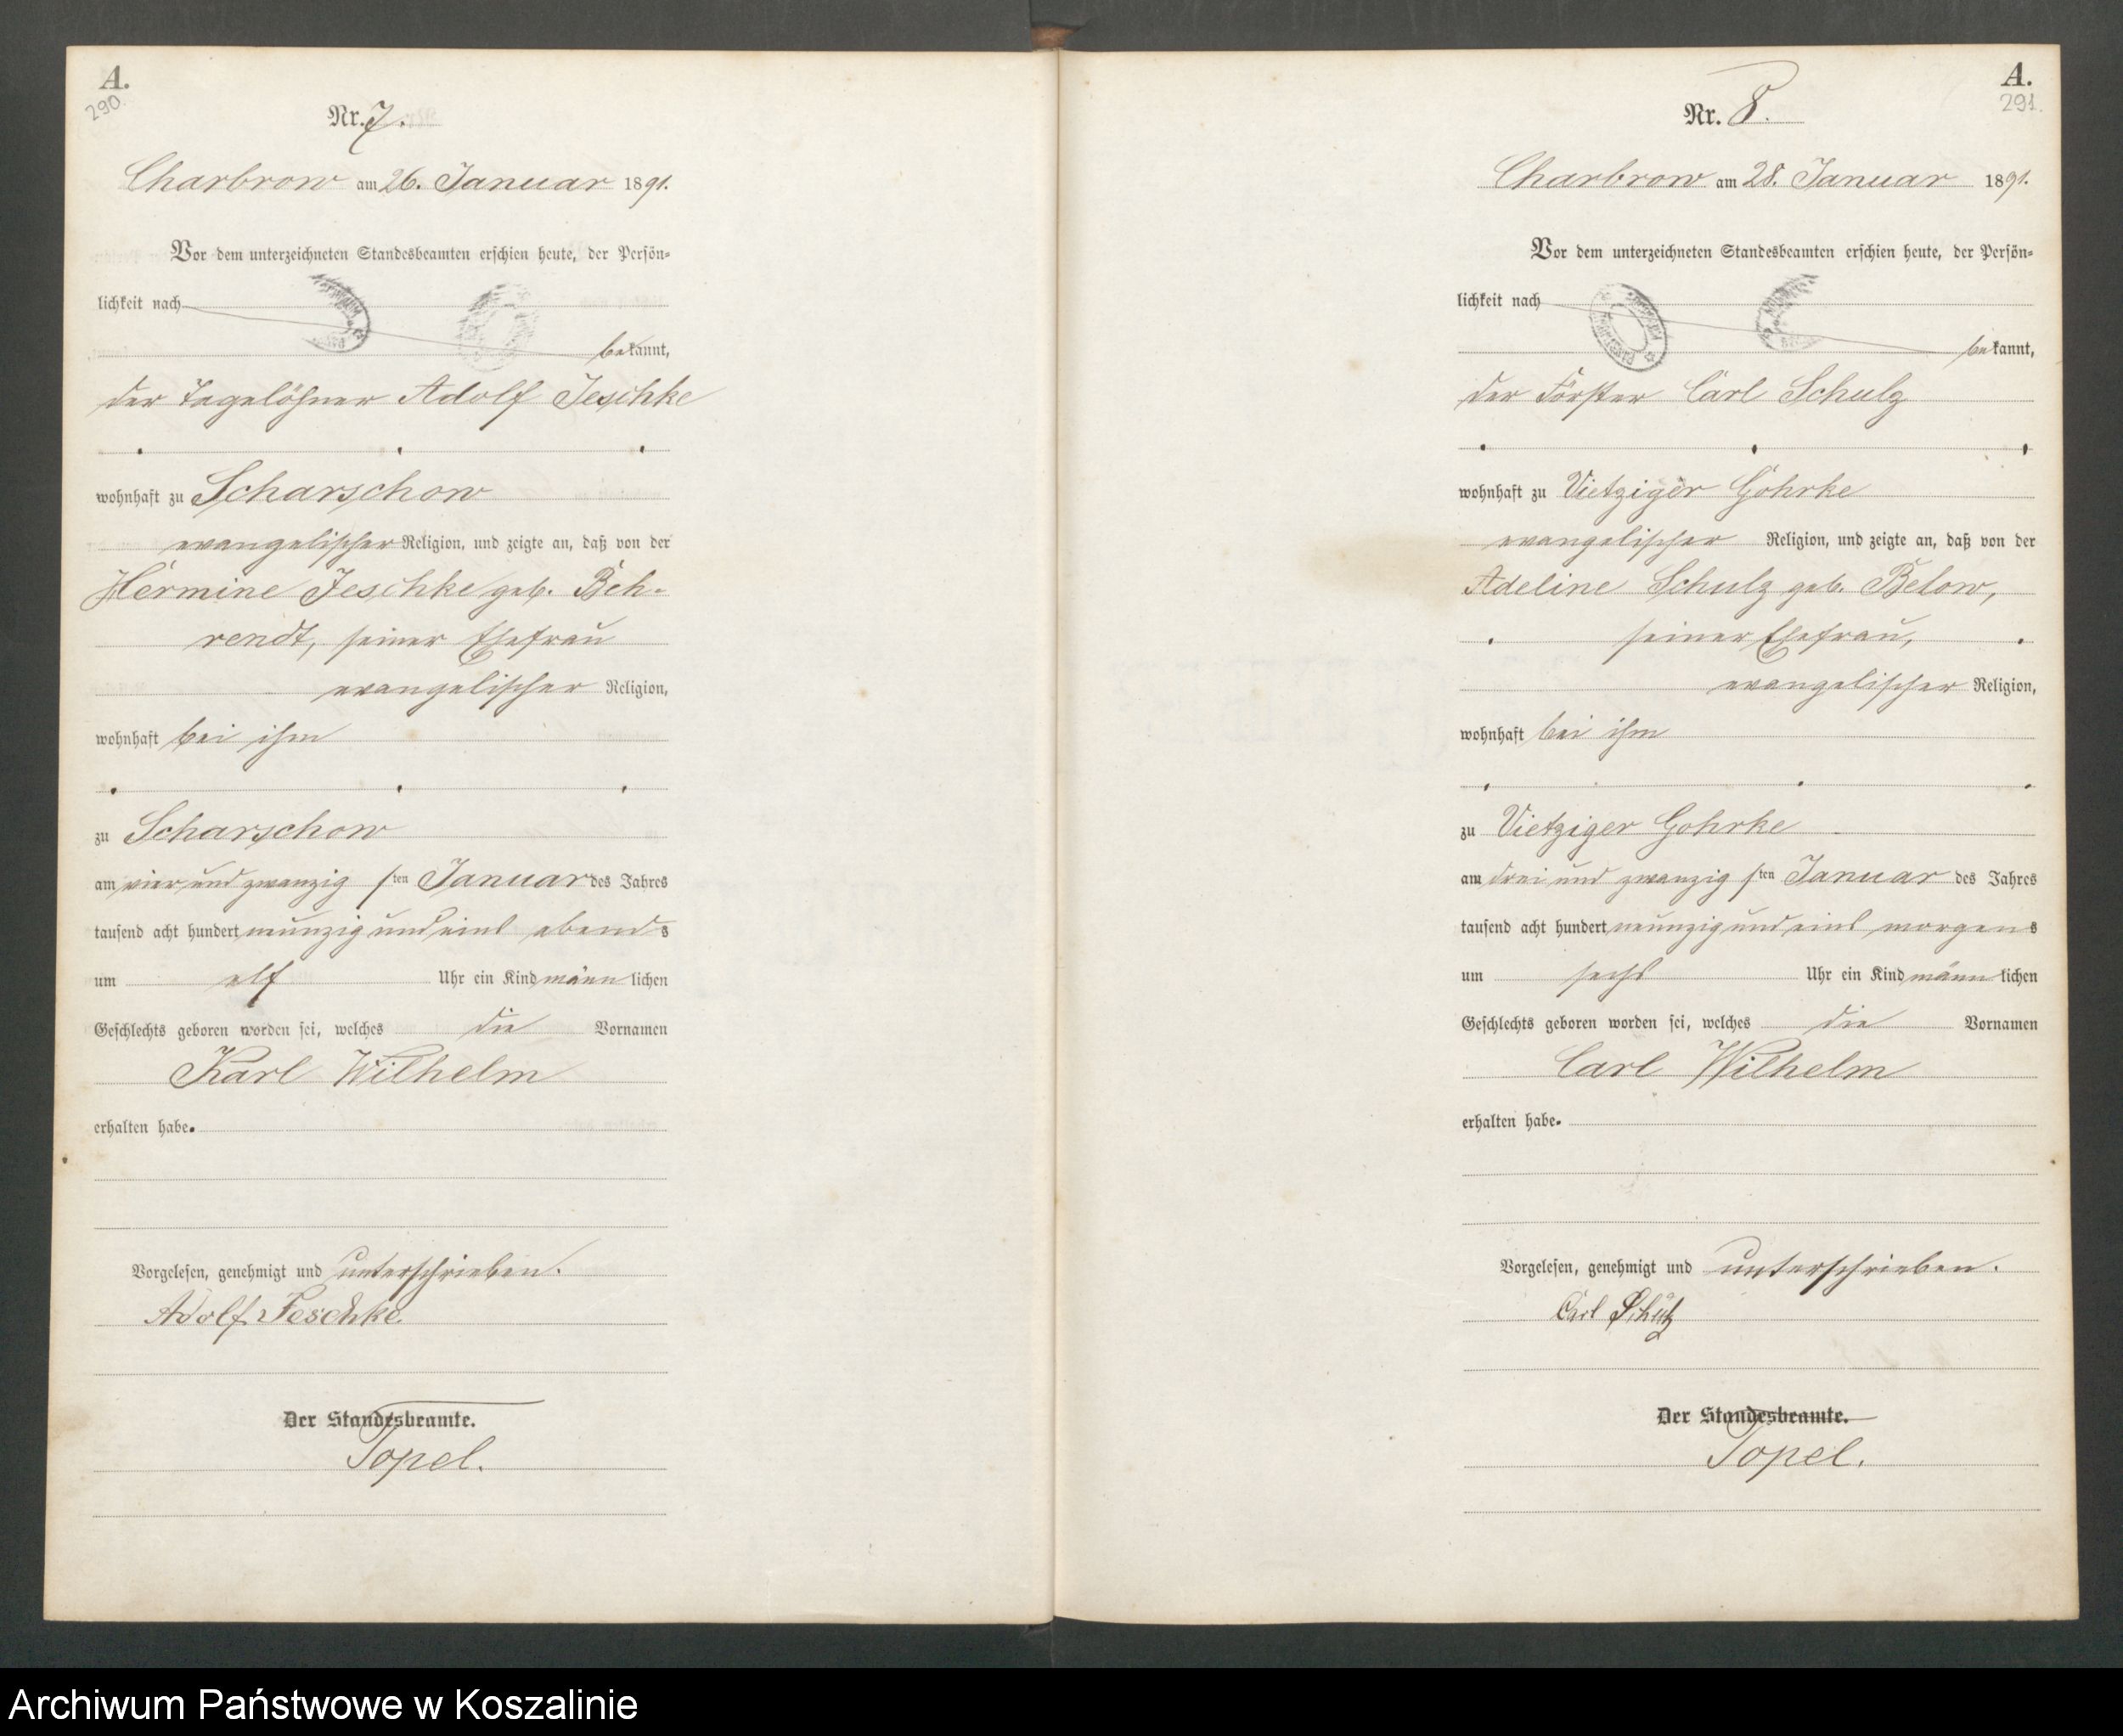 A.
290.
Nr. 7.
Charbrow am 26. Januar 1891.
Vor dem unterzeichneten Standesbeamten erschien heute, der Persön-
lichkeit nach
bekannt,
der Tagelöhner Adolf Jeschke
wohnhaft zu Scharschow
evangelischer Religion, und zeigte an, daß von der
Hermine Jeschke geb. Beh-
rendt, seiner Ehefrau
evangelischer Religion,
wohnhaft bei ihm
zu Scharschow
am vier und zwanzigsten Januar des Jahres
tausend acht hundert neunzig und eins abends
um elf Uhr ein Kind männlichen
Geschlechts geboren worden sei, welches die Vornamen
Karl Wilhelm
erhalten habe.
Vorgelesen, genehmigt und unterschrieben.
Adolf Jeschke
Der Standesbeamte.
Topel.
A.
291.
Nr. 8.
Charbrow am 28. Januar 1891.
Vor dem unterzeichneten Standesbeamten erschien heute, der Persön-
lichkeit nach
bekannt,
der Förster Carl Schulz
wohnhaft zu Vietziger Gohrke
evangelischer Religion, und zeigte an, daß von der
Adeline Schulz geb. Below,
seiner Ehefrau,
evangelischer Religion,
wohnhaft bei ihm
zu Vietziger Gohrke
am drei und zwanzigsten Januar des Jahres
tausend acht hundert neunzig und eins morgens
um sechs Uhr ein Kind männlichen
Geschlechts geboren worden sei, welches die Vornamen
Carl Wilhelm
erhalten habe.
Vorgelesen, genehmigt und unterschrieben.
Carl Schulz
Der Standesbeamte.
Topel.
Archiwum Państwowe w Koszalinie